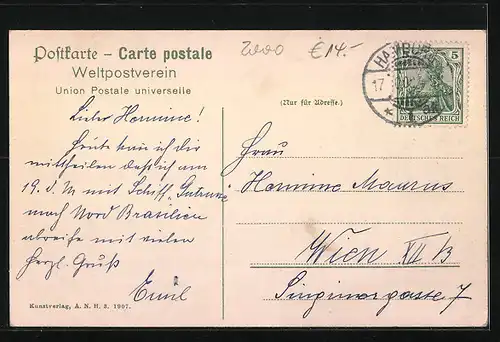 Postkarte – Carte postale
Weltpostverein
Union Postale universelle
2000 €14.-
HAMBURG
17
5
DEUTSCHES REICH
(Nur für Adresse.)
Liebe Hermine!
Heute kann ich dir
mittheilen daß ich am
19. d. M mit Schiff
nach Nord Brasilien
abreise mit vielen
herzl. Gruß
Emil
Frau
Hermine Maurus
Wien XII B
7
Kunstverlag, A. N. H. 3. 1907.